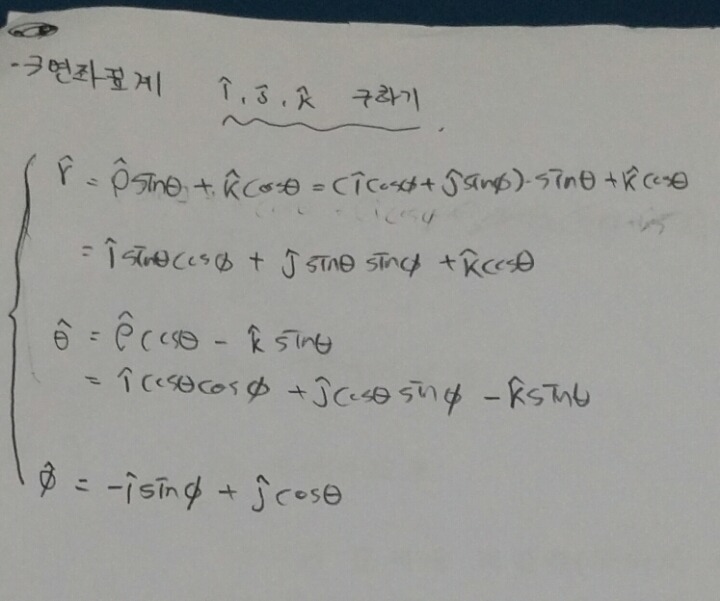 ·구면좌표계 î, ĵ, k̂ 구하기.
r̂ = ρ̂sinθ + k̂cosθ = (îcosϕ + ĵsinϕ)·sinθ + k̂cosθ
= îsinθcosϕ + ĵsinθ sinϕ + k̂cosθ
θ̂ = ρ̂cosθ - k̂sinθ
= îcosθcosϕ + ĵcosθsinϕ - k̂sinθ
ϕ̂ = -îsinϕ + ĵcosθ